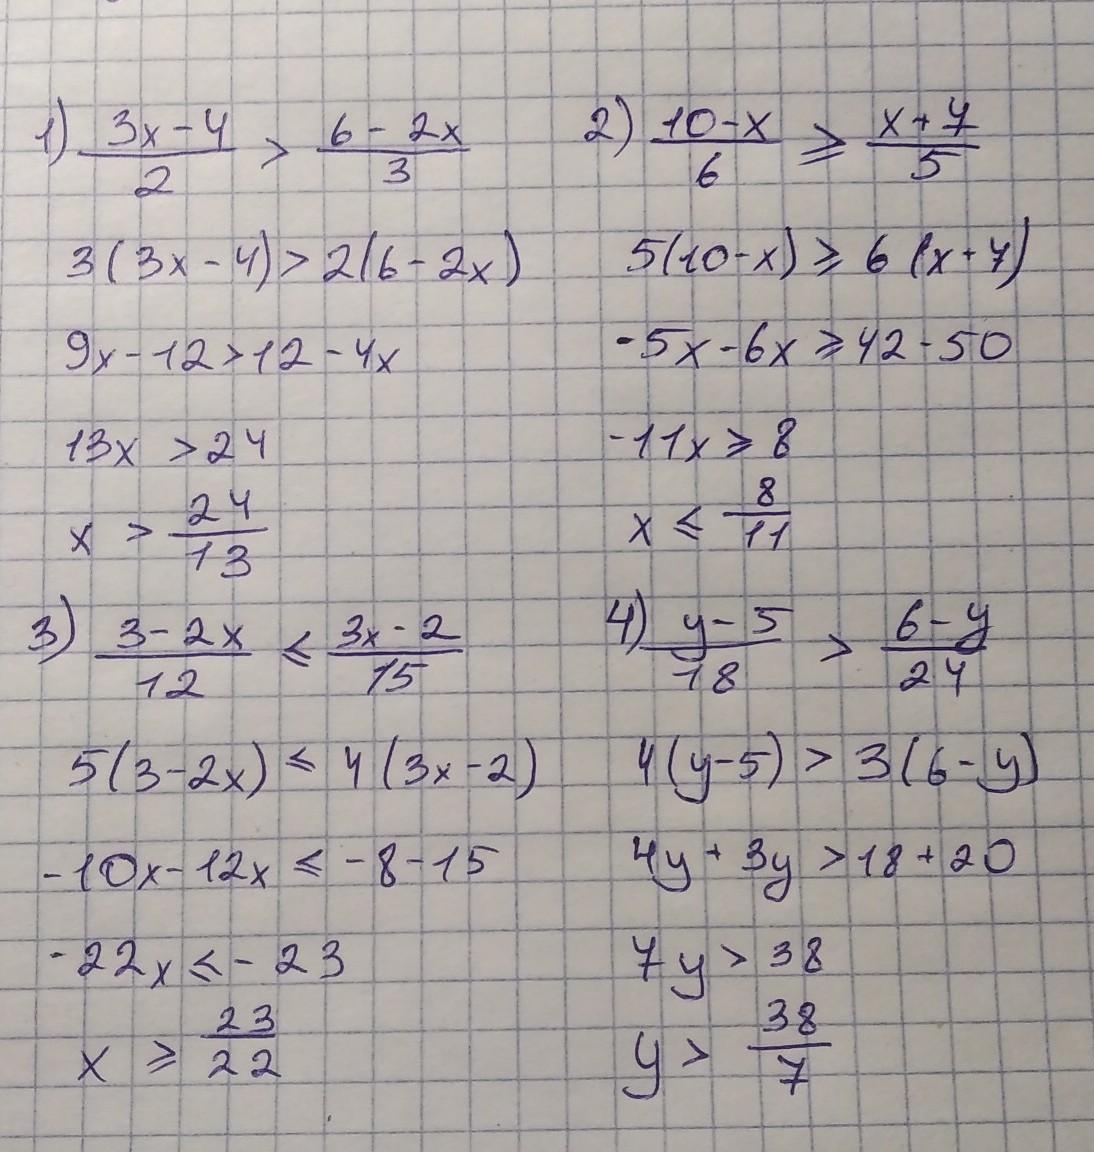 1) (3x-4)/2 > (6-2x)/3
3(3x-4)>2(6-2x)
9x-12>12-4x
13x >24
x > 24/13
2) (10-x)/6 ⩾ (x+7)/5
5(10-x)⩾6(x+7)
-5x-6x⩾42-50
-11x⩾8
x ⩽ 8/11
3) (3-2x)/12 ⩽ (3x-2)/15
5(3-2x) ⩽ 4(3x-2)
-10x-12x ⩽ -8-15
-22x ⩽ -23
x ⩾ 23/22
4) (y-5)/18 > (6-y)/24
4(y-5) > 3(6-y)
4y+3y >18+20
7y > 38
y > 38/7